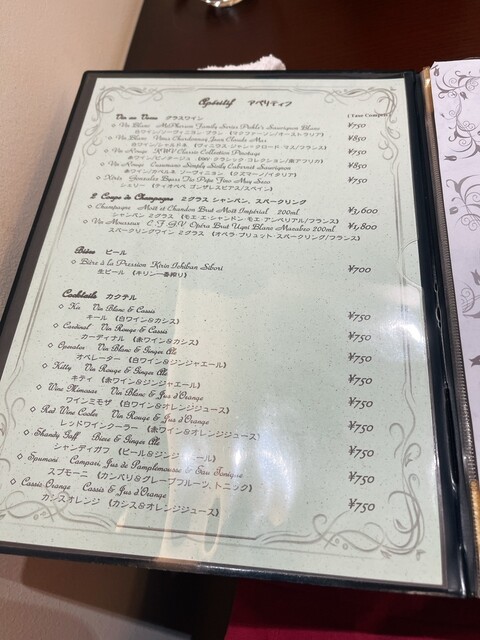 Apéritif アペリティフ
Vin au Verre グラスワイン (Taxe Compris)
◇ Vin Blanc McPherson Family Series Sauvignon Blanc ¥750
白ワイン/ソーヴィニヨン ブラン 《マクファーソン/オーストラリア》
◇ Vin Blanc Chardonnay Jean Claude Mas ¥850
白ワイン/シャルドネ 《ヴィニウス ジャン・クロード・マス/フランス》
◇ Vin Rouge KWV Classic Collection Pinotage ¥750
赤ワイン/ピノタージュ 《KWV クラシック コレクション/南アフリカ》
◇ Vin Rouge Cusumano Simply Sicily Cabernet Sauvignon ¥850
赤ワイン/カベルネ ソーヴィニョン 《クズマーノ/イタリア》
◇ Xérès Gonzalez Byass Tio Pepe Fino Muy Seco ¥750
シェリー 《ティオペペ ゴンザレスビアス/スペイン》
2 Coupe de Champagnes ミグラス シャンパン、スパークリング
◇ Champagne Moët et Chandon Brut Moët Impérial 200ml ¥3,600
シャンパン ミグラス 《モエ・エ・シャンドン モエ・アンペリアル/フランス》
◇ Vin Mousseux C.F.G.V Opéra Brut Ugni Blanc Macabeo 200ml ¥1,800
スパークリングワイン ミグラス 《オペラ・ブリュット・スパークリング/フランス》
Bière ビール
◇ Bière à la Pression Kirin Ichiban Sibori ¥700
生ビール 《キリン一番搾り》
Cocktails カクテル
◇ Kir Vin Blanc & Cassis ¥750
キール 《白ワイン&カシス》
◇ Cardinal Vin Rouge & Cassis ¥750
カーディナル 《赤ワイン&カシス》
◇ Operator Vin Blanc & Ginger Ale ¥750
オペレーター 《白ワイン&ジンジャエール》
◇ Kitty Vin Rouge & Ginger Ale ¥750
キティ 《赤ワイン&ジンジャエール》
◇ Wine Mimosar Vin Blanc & Jus d'Orange ¥750
ワインミモザ 《白ワイン&オレンジジュース》
◇ Red Wine Cooler Vin Rouge & Jus d'Orange ¥750
レッドワインクーラー 《赤ワイン&オレンジジュース》
◇ Shandy Gaff Bière & Ginger Ale ¥750
シャンディガフ 《ビール&ジンジ ール》
◇ Spumoni Campari, Jus de Pamplemousse & Eau Tonique ¥750
スプモーニ 《カンパリ&グレープフルーツ,トニック》
◇ Cassis Orange Cassis & Jus d'Orange ¥750
カシスオレンジ 《カシス&オレンジジュース》